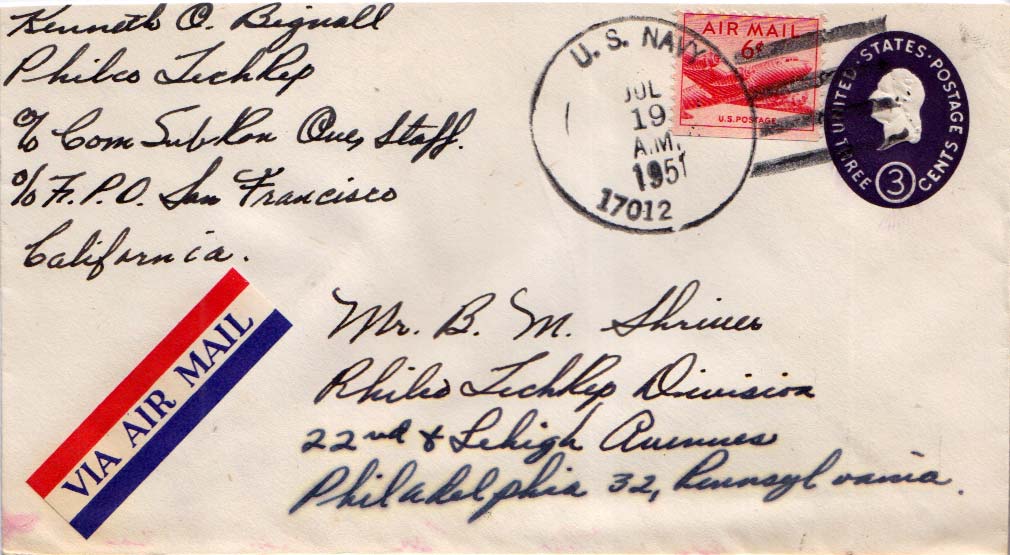 Kenneth O. Bignall
Philco TechRep
c/o ComSubRon One, Staff.
c/o F.P.O. San Francisco
California.
U. S. NAVY
JUL
19
A.M.
1951
17012
AIR MAIL
6¢
U.S. POSTAGE
UNITED · STATES · POSTAGE
THREE 3 CENTS
VIA AIR MAIL
Mr. B. M. Shriver
Philco TechRep Division
22nd & Lehigh Avenues
Philadelphia 32, Pennsylvania.